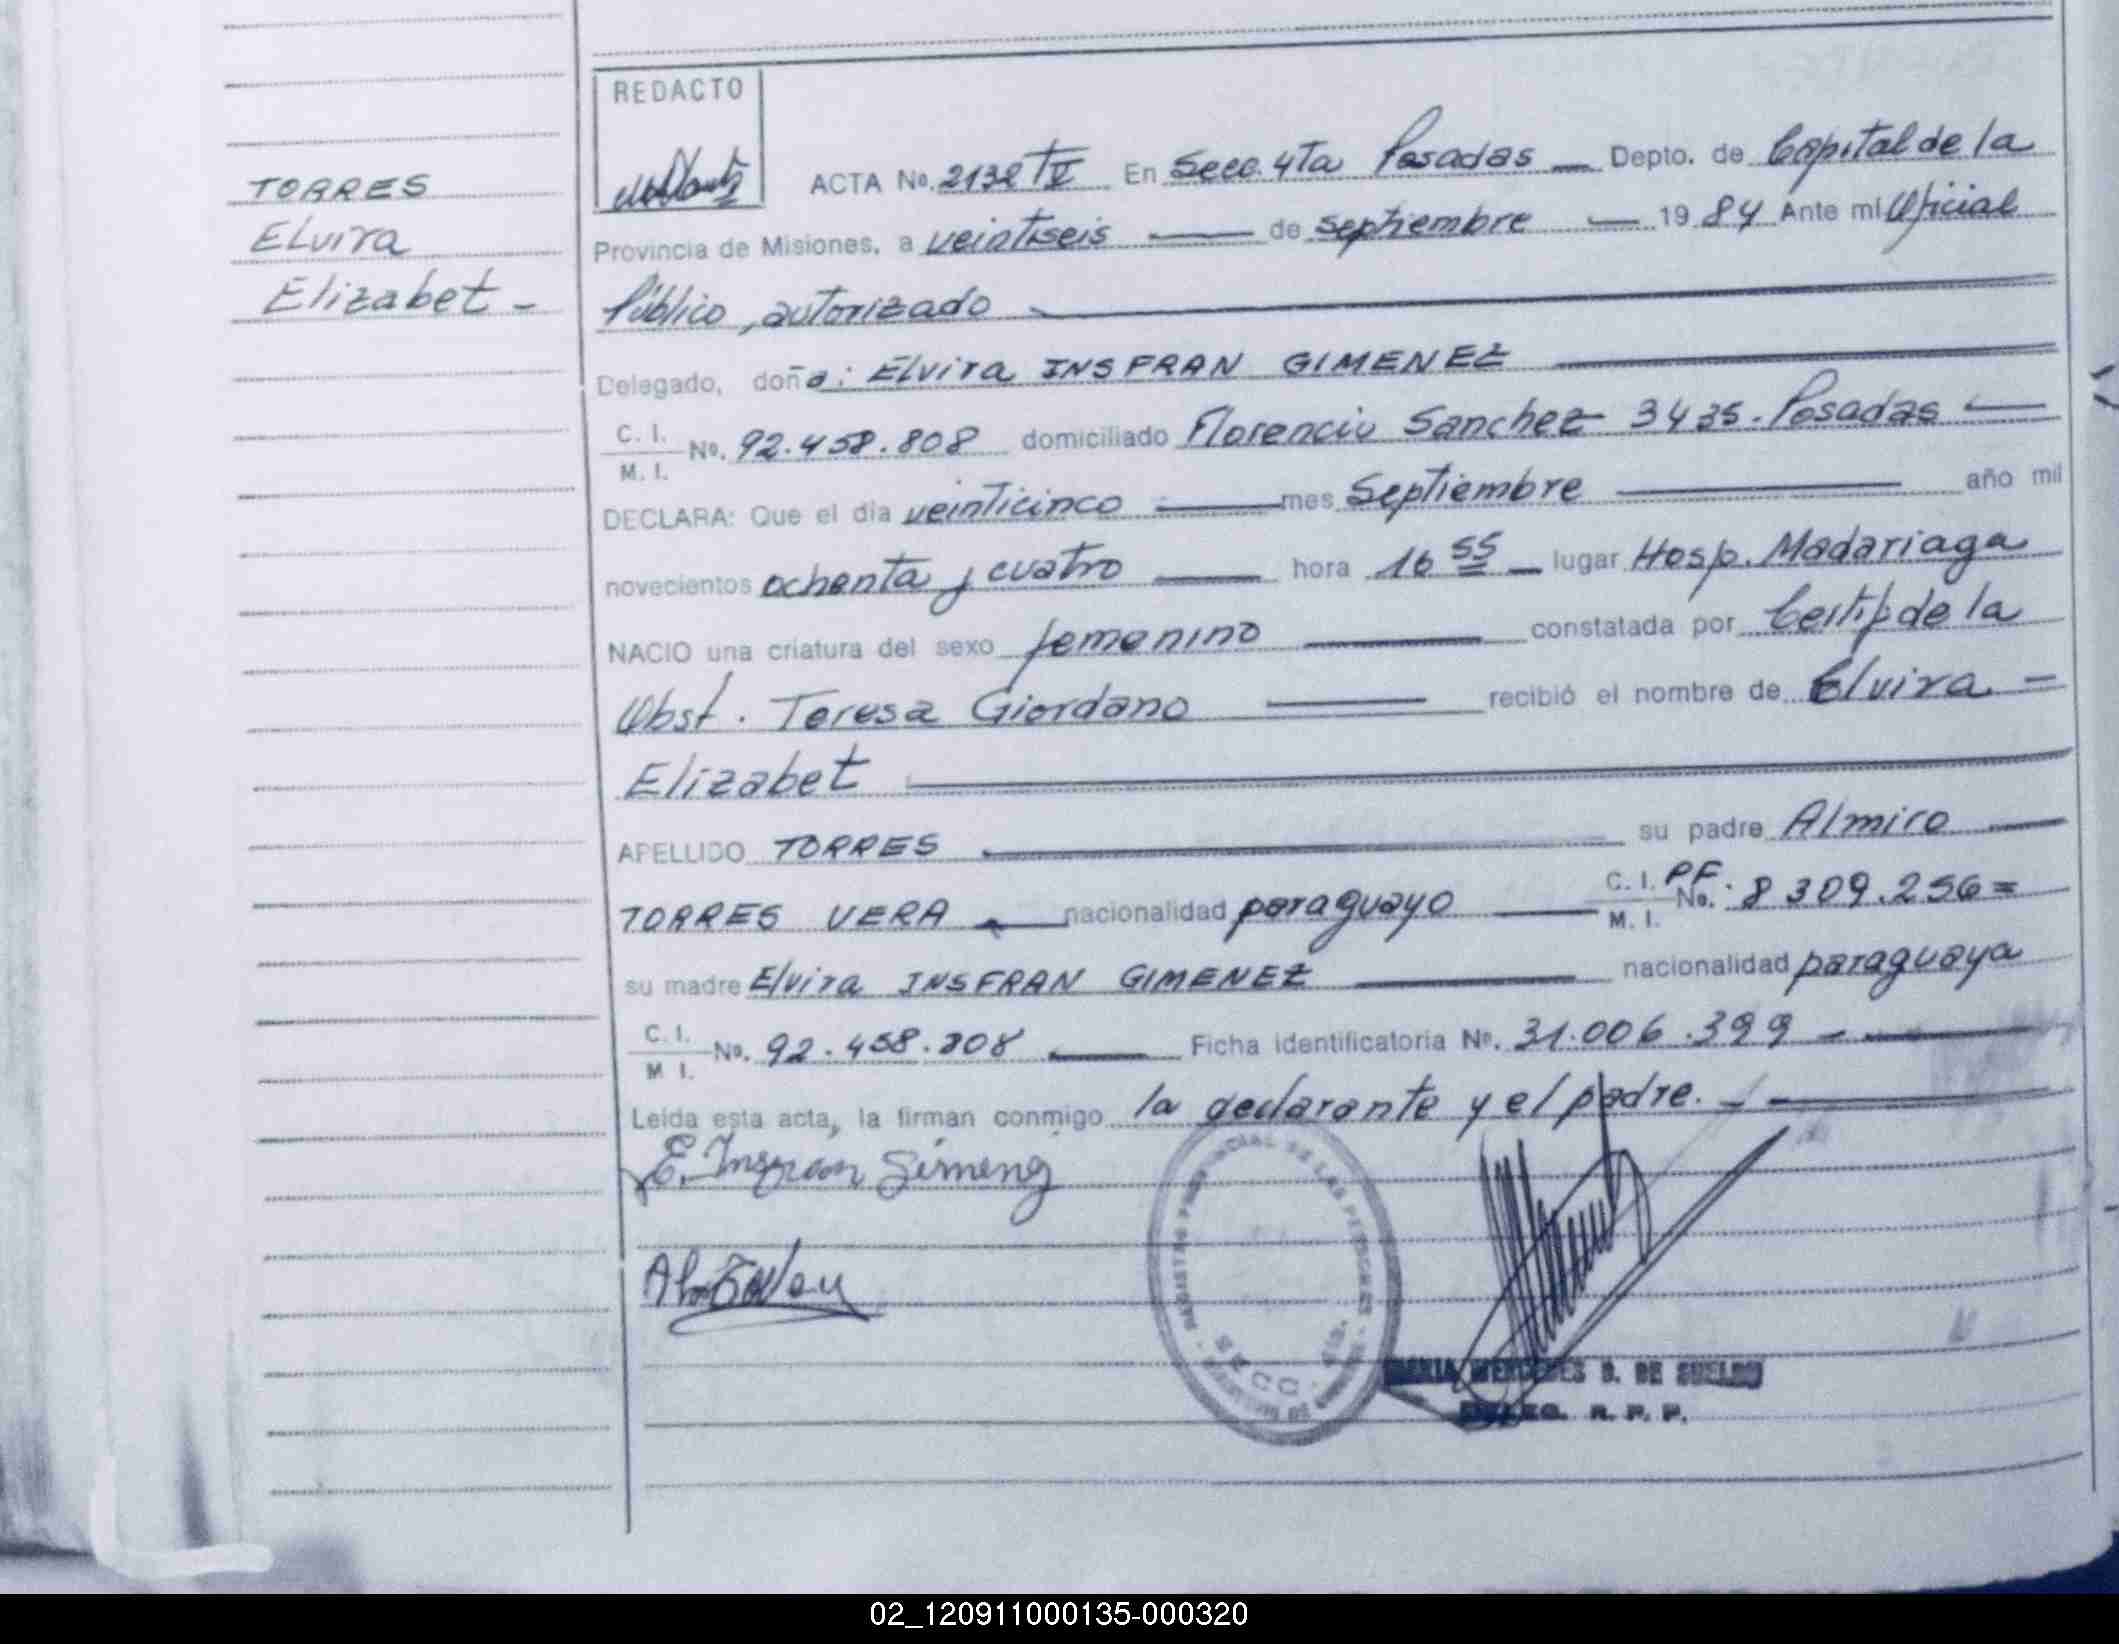 TORRES
Elvira
Elizabet -
REDACTO
ACTA No. 2132 TV En Secc. 4Ta Posadas — Depto. de Capital de la
Provincia de Misiones, a veintiseis — de septiembre — 19 84 Ante mí Oficial
Público, autorizado
Delegado, doña: Elvira INSFRAN GIMENEZ
C. I. / M. I. No. 92.458.808 domiciliado Florencio Sanchez 3435. Posadas —
DECLARA: Que el día veinticinco — mes Septiembre — año mil
novecientos ochenta y cuatro — hora 16 55 — lugar Hosp. Madariaga
NACIO una criatura del sexo femenino — constatada por Certif. de la
Obst. Teresa Giordano — recibió el nombre de Elvira —
Elizabet
APELLIDO TORRES — su padre Almiro —
TORRES VERA — nacionalidad paraguayo — C. I. / M. I. PF. No. 8 309.256=
su madre Elvira INSFRAN GIMENEZ — nacionalidad paraguaya
C. I. / M I. No. 92.458.808 — Ficha identificatoria No. 31.006.399 -
Leída esta acta, la firman conmigo la declarante y el padre. -
E. Insfran Gimenez
REGISTRO PROVINCIAL DE LAS PERSONAS
SECC.
MARIA MERCEDES D. DE SUELDO
DELEG. R. P. P.
02_120911000135-000320